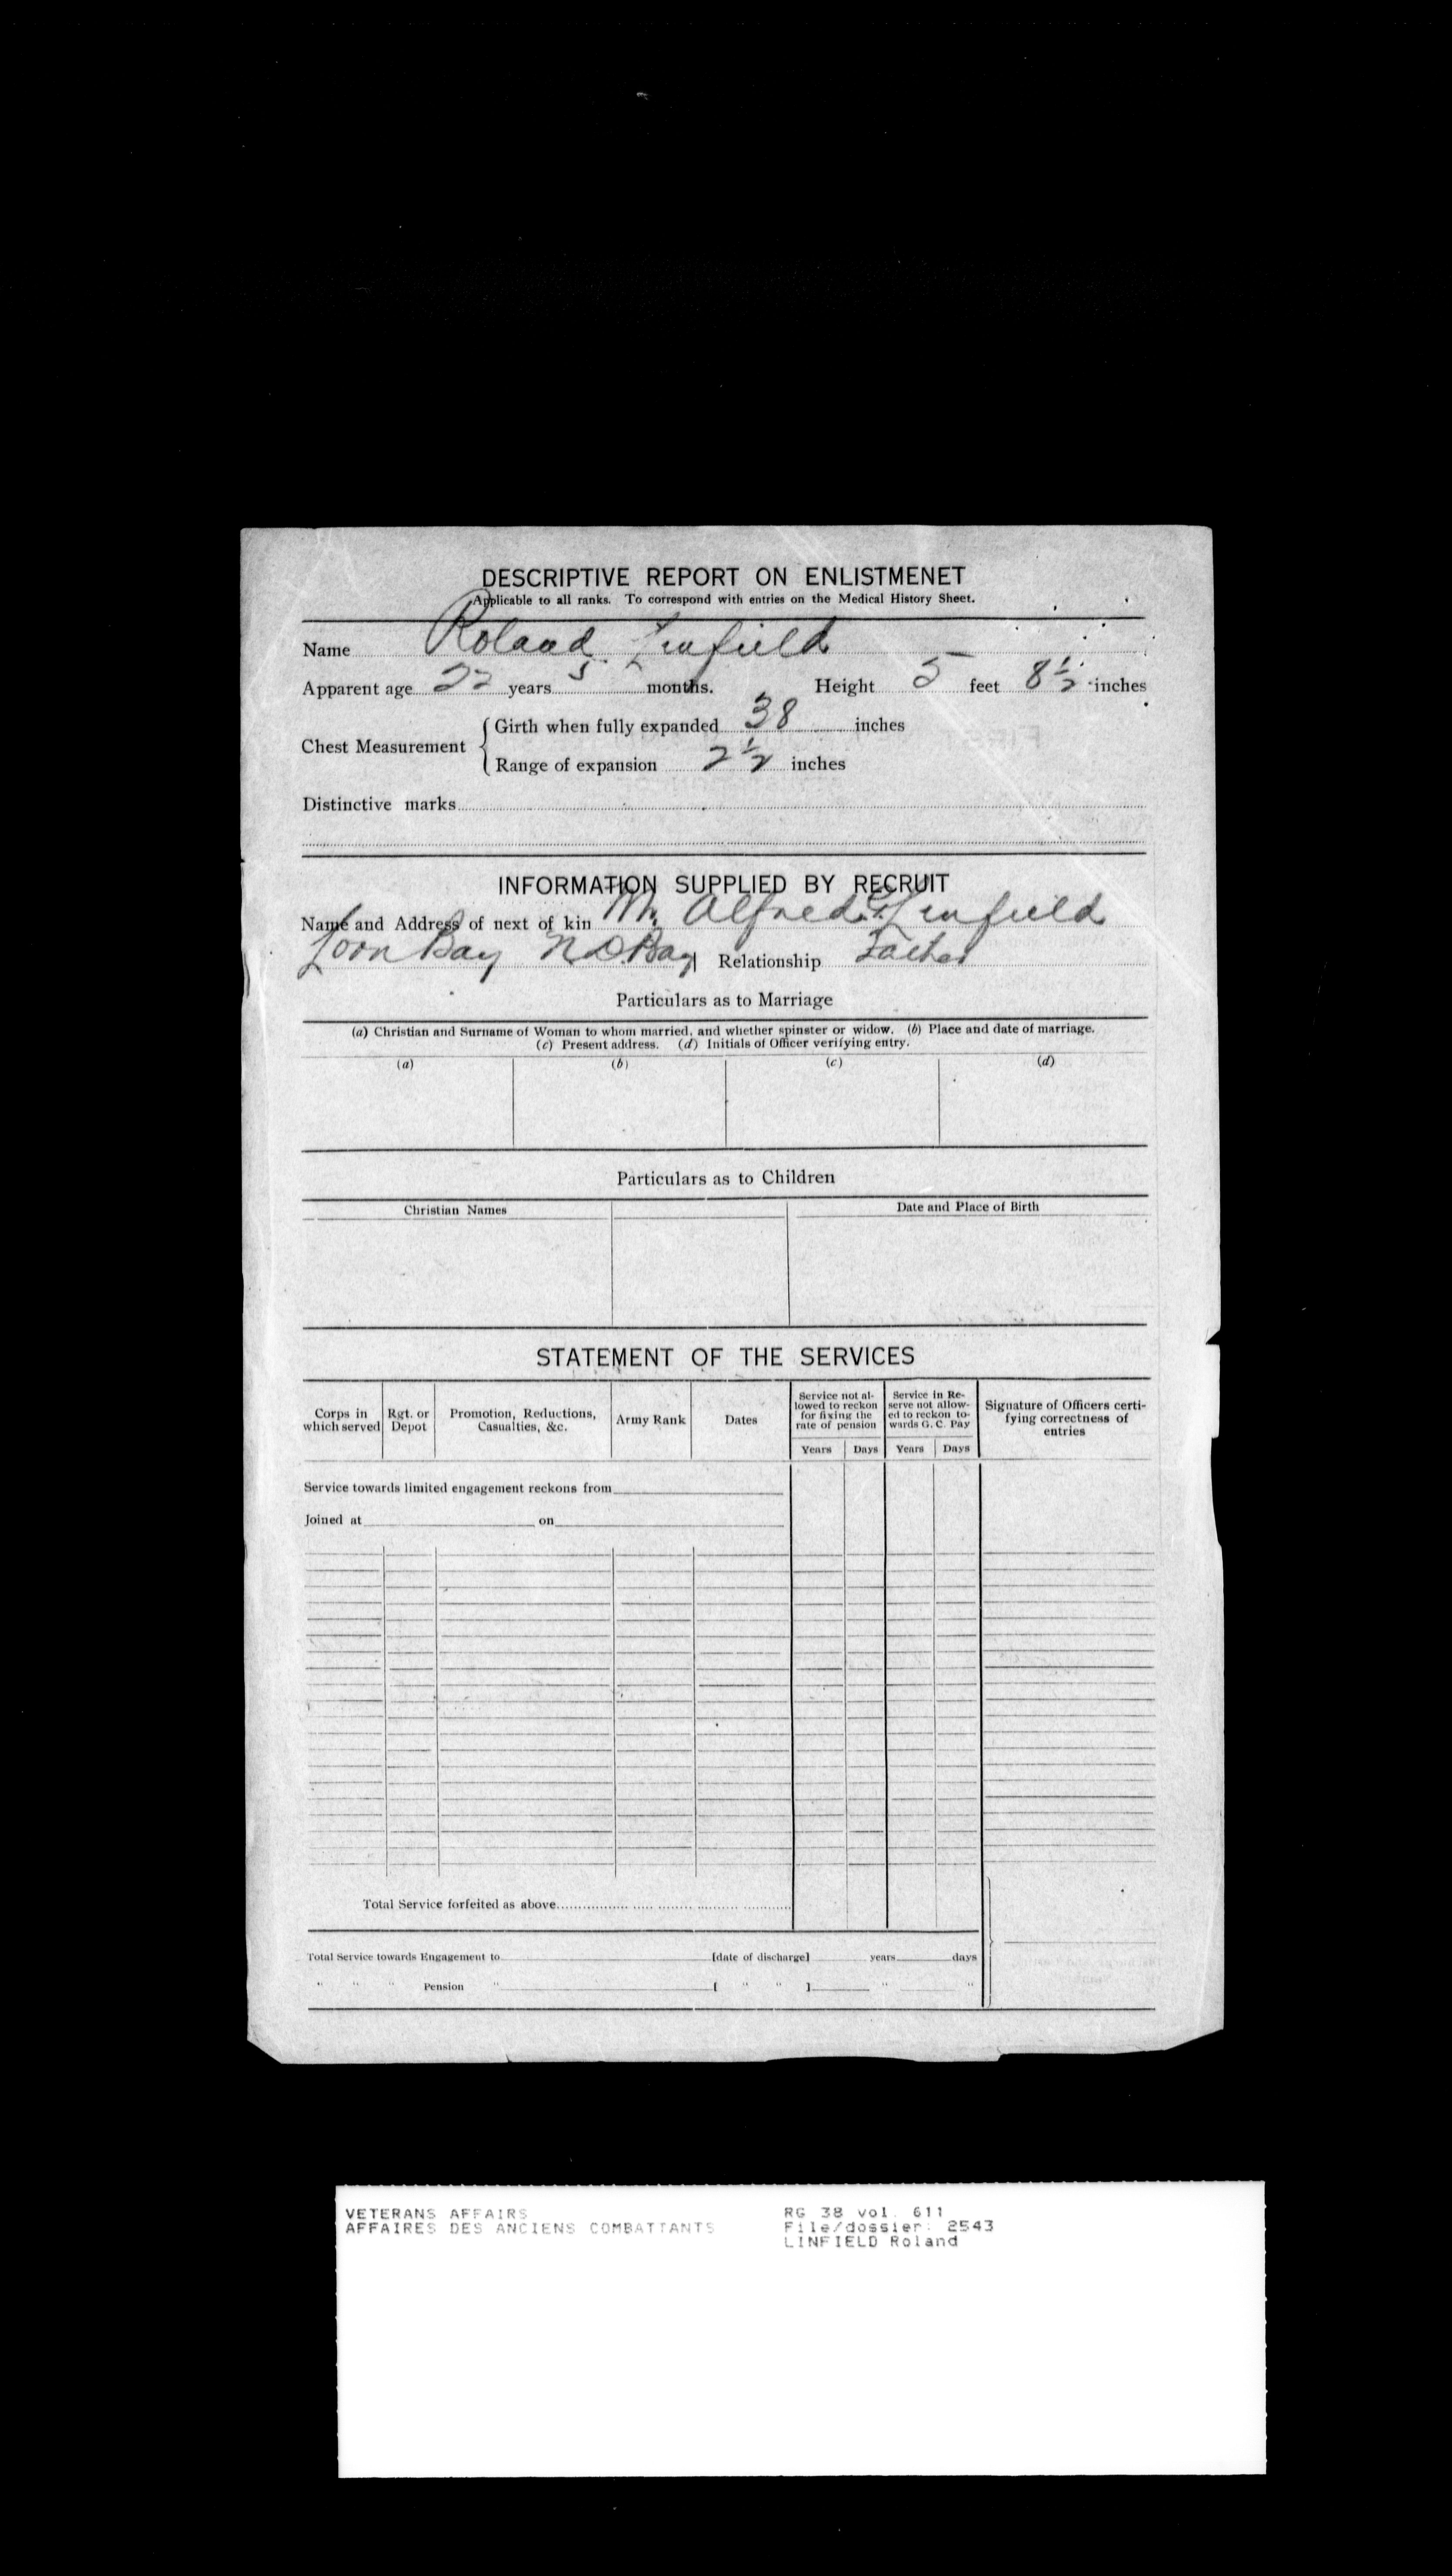 DESCRIPTIVE REPORT ON ENLISTMENET
Applicable to all ranks. To correspond with entries on the Medical History Sheet.
Name Roland Linfield
Apparent age 22 years 5 months. Height 5 feet 8½ inches
Chest Measurement
Girth when fully expanded 38 inches
Range of expansion 2½ inches
Distinctive marks
INFORMATION SUPPLIED BY RECRUIT
Name and Address of next of kin Mr. Alfred Linfield
Loon Bay N.D.Bay Relationship Father
Particulars as to Marriage
(a) Christian and Surname of Woman to whom married, and whether spinster or widow. (b) Place and date of marriage.
(c) Present address. (d) Initials of Officer verifying entry.
(a) (b) (c) (d)
Particulars as to Children
Christian Names Date and Place of Birth
STATEMENT OF THE SERVICES
Corps in which served Rgt. or Depot Promotion, Reductions, Casualties, &c. Army Rank Dates Service not al- lowed to reckon for fixing the rate of pension Service in Re- serve not allow- ed to reckon to- wards G. C. Pay Signature of Officers certi- fying correctness of entries
Years Days Years Days
Service towards limited engagement reckons from
Joined at on
Total Service forfeited as above
Total Service towards Engagement to [date of discharge] years days
" " " Pension " [ " " ] " "
VETERANS AFFAIRS RG 38 vol. 611
AFFAIRES DES ANCIENS COMBATTANTS File/dossier: 2543
LINFIELD Roland